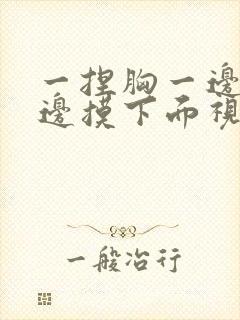 一捏胸一邊
邊摸下而視
一般冶行